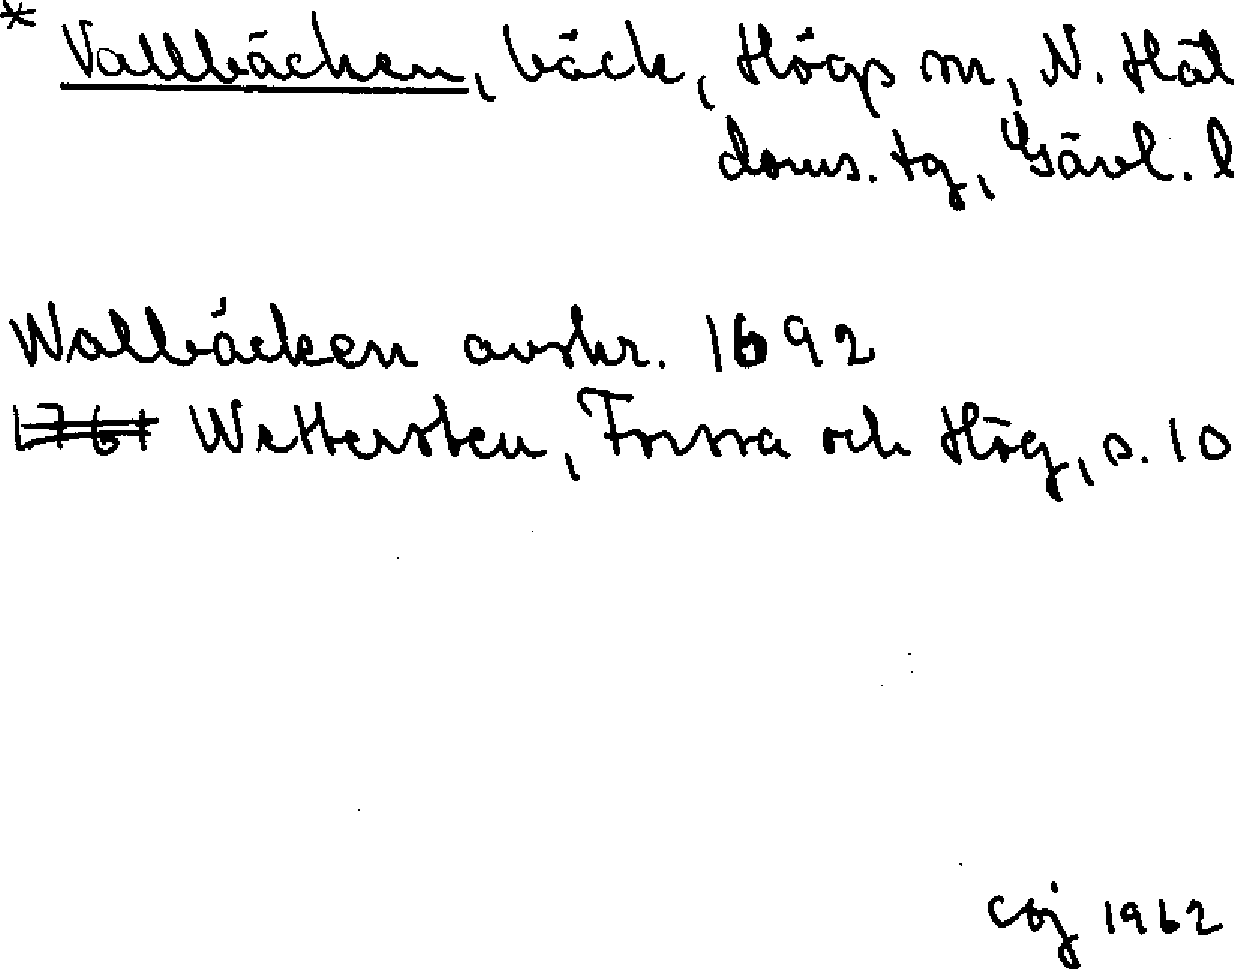 * Vallbäcken, bäck, Högs sn, N. Häl
doms. tg, Gävl. l
Wallbäcken avskr. 1692
Wettersten, Forssa och Hög, s. 10
coj 1962